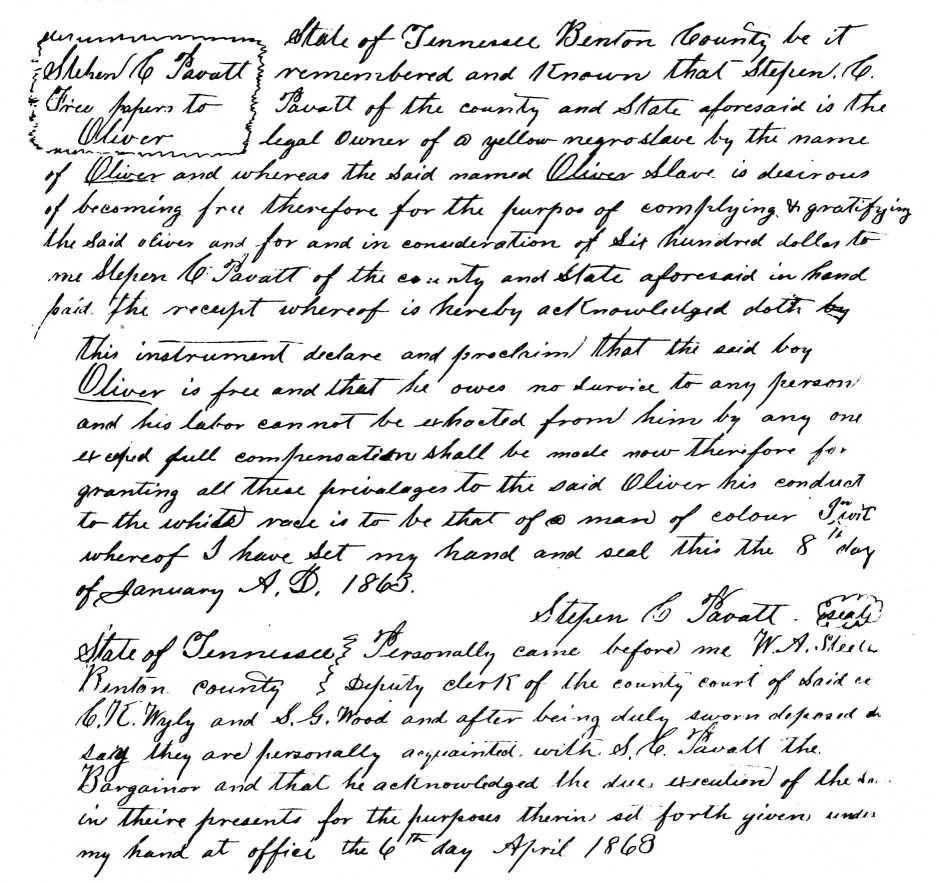 Stehen C Pavatt
Free papers to
Oliver
State of Tennessee Benton County be it
remembered and Known that Stepen. C.
Pavatt of the county and State aforesaid is the
legal Owner of a yellow negro slave by the name
of Oliver and whereas the Said named Oliver Slave is desirous
of becoming free therefore for the purpos of complying & gratifying
the Said oliver and for and in consideration of Six hundred dollars to
me Stepen C Pavatt of the county and State aforesaid in hand
paid. the receipt whereof is hereby acknowledged doth by
this instrument declare and proclaim that the said boy
Oliver is free and that he owes no survice to any person
and his labor cannot be exhacted from him by any one
excepd full compensation shall be made now therefore for
granting all these privalages to the said Oliver his conduct
to the white race is to be that of a man of colour In wit
whereof I have Set my hand and seal this the 8th day
of January A. D. 1863.
Stepen C Pavatt. seal
State of Tennessee Personally came before me W. A. Steele
Benton county Deputy clerk of the county court of Said
C. K. Wyly and S. G. Wood and after being duly sworn deposed
say they are personally acquainted with S. C. Pavatt the
Bargainor and that he acknowledged the due execution of the
in theire presents for the purposes therin set forth given under
my hand at office the 6th day April 1863